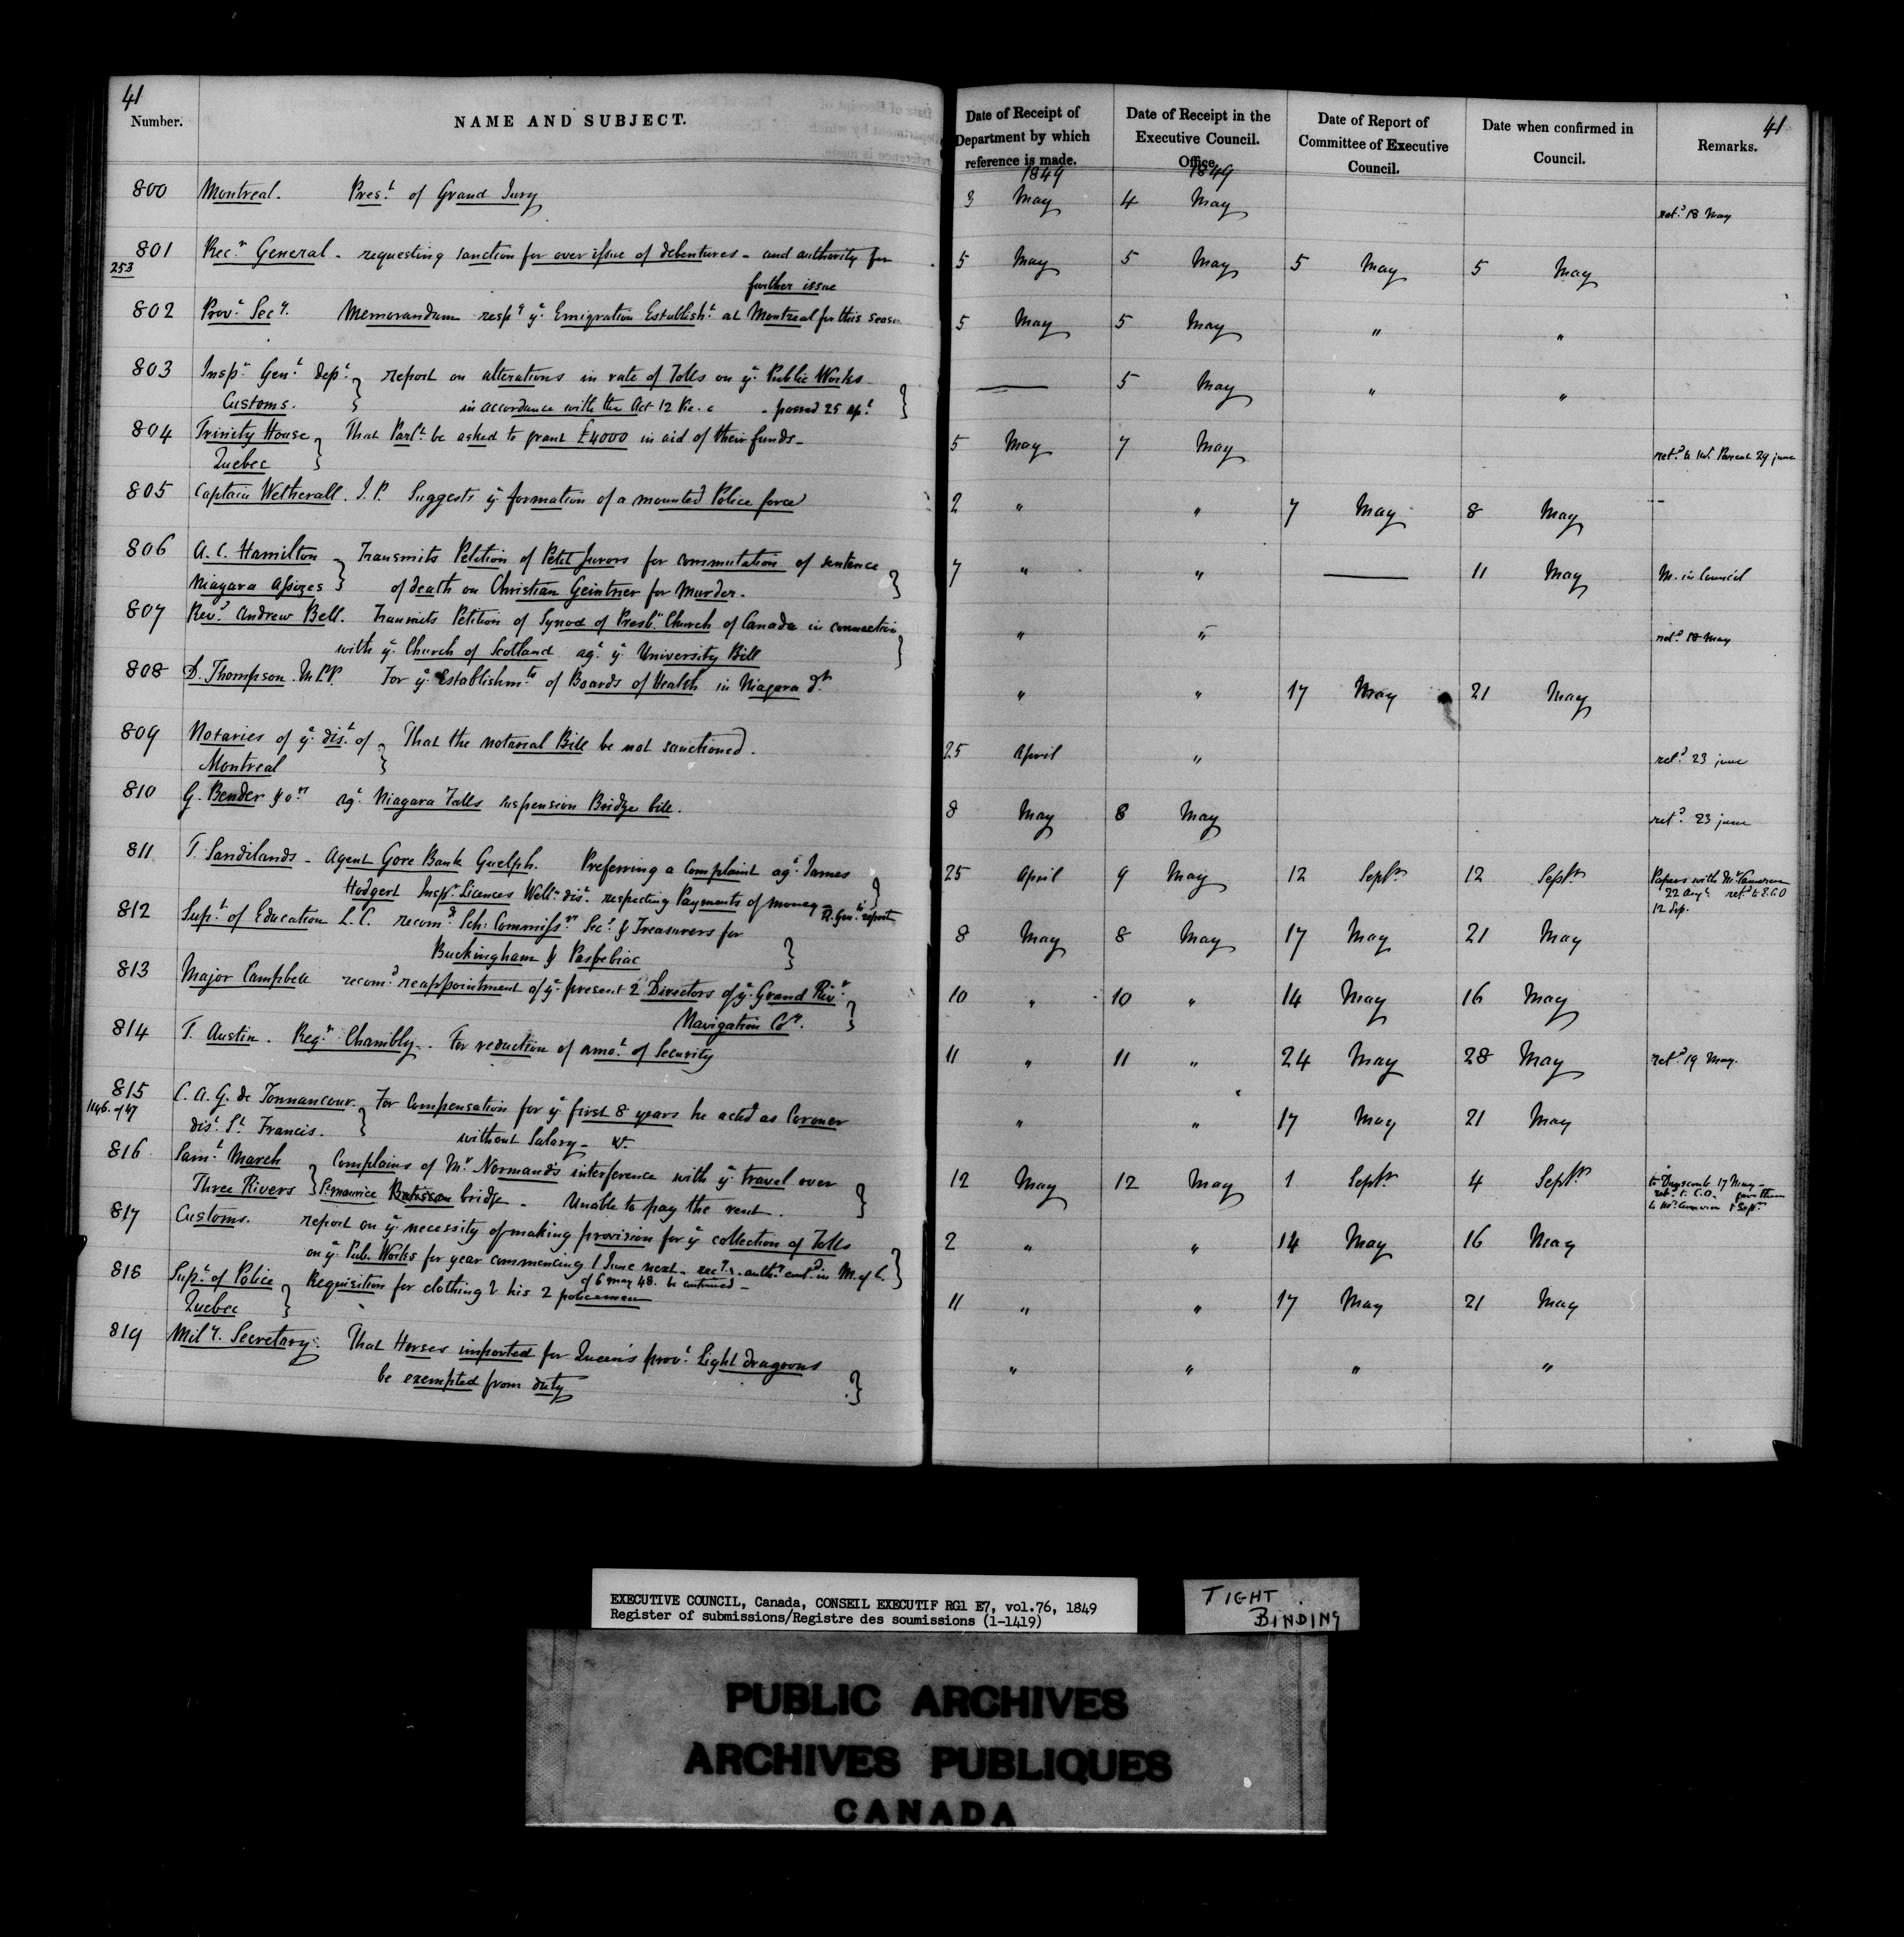 41
Number. NAME AND SUBJECT. Date of Receipt of Department by which reference is made. Date of Receipt in the Executive Council. Office. Date of Report of Committee of Executive Council. Date when confirmed in Council. Remarks. 41
1849 1849
800 Montreal. Pres.t of Grand Jury 3 May 4 May ret.d 18 May
801 Rec.r General - requesting sanction for over issue of debentures - and authority for 5 May 5 May 5 May 5 May
253 further issue
802 Prov.l Sec.y. Memorandum resp.g ye Emigration Establish.t at Montreal for this season 5 May 5 May " "
803 Insp.r Gen.l dep.t } report on alterations in rate of Tolls on ye Public Works — 5 May " "
Customs. } in accordance with the Act 12 Vic. c - passed 25 ap.l }
804 Trinity House } That Parl.t be asked to grant £4000 in aid of their funds - 5 May 7 May ret.d to Mr. Parent 29 june
Quebec }
805 Captain Wetherall. J.P. Suggests ye formation of a mounted Police force 2 " " 7 May 8 May
806 A. C. Hamilton } Transmits Petition of Petit Jurors for commutation of sentence 7 " " — 11 May M. in Council
Niagara Assizes } of death on Christian Geintner for Murder. }
807 Rev.d Andrew Bell. Transmits Petition of Synod of Presb.n Church of Canada in connection " " ret.d 18 May
with ye Church of Scotland ag.t ye University Bill }
808 D. Thompson. M.P.P. For ye Establishm.ts of Boards of Health in Niagara d.t " " 17 May 21 May
809 Notaries of ye dis.t of } That the notarial Bill be not sanctioned. 25 April " ret.d 23 june
Montreal }
810 G. Bender & o.rs ag.t Niagara Falls suspension Bridge bill. 8 May 8 May ret.d 23 june
811 T. Sandilands - Agent Gore Bank Guelph. Preferring a complaint ag.t James 25 April 9 May 12 Sept.r 12 Sept.r Papers with Mr Cameron
Hodgert Insp.r Licences Well.n dis.t respecting Payments of money - }  22 Aug.t ret.d to E.C.O
12 Sep.
812 Sup.t of Education L.C. recom.ds Sch: Commiss.rs Sec.y & Treasurers for 8 May 8 May 17 May 21 May
Buckingham & Paspebiac }
813 Major Campbell recom.d reappointment of ye present 2 Directors of ye Grand Riv.r 10 " 10 " 14 May 16 May
Navigation Co.y. }
814 T. Austin. Reg.r Chambly. For reduction of amo.t of Security 11 " 11 " 24 May 28 May ret.d 19 May.
815 C. A. G. de Tonnancour. } For Compensation for ye first 8 years he acted as Coroner " " 17 May 21 May
1146. of 47 dis.t St Francis. } without Salary -
816 Sam.l March } Complains of Mr Normand's interference with ye travel over 12 May 12 May 1 Sept.r 4 Sept.r
Three Rivers } St maurice Batiscan bridge - Unable to pay the rent. }
817 Customs. report on ye necessity of making provision for ye collection of Tolls 2 " " 14 May 16 May
on ye Pub. Works for year commencing 1 June next - auth.y in M. of C. }
of 6 may 48. be continued -
818 Sup.t of Police } Requisition for clothing & his 2 policemen 11 " " 17 May 21 May
Quebec }
819 Mil.y. Secretary. That Horses imported for Queen's prov.l Light dragoons " " " "
be exempted from duty }
EXECUTIVE COUNCIL, Canada, CONSEIL EXECUTIF RG1 E7, vol.76, 1849
Register of submissions/Registre des soumissions (1-1419)
TIGHT
BINDING
PUBLIC ARCHIVES
ARCHIVES PUBLIQUES
CANADA